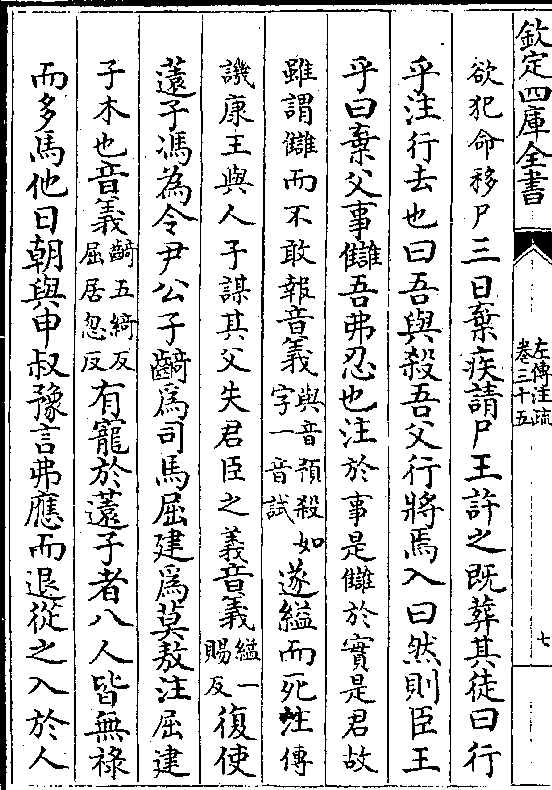 欽定四庫全書
左傳注疏
卷三十五
七
欲犯命移尸三日棄疾請尸王許之既葬其徒曰行
乎注行去也曰吾與殺吾父行將焉入曰然則臣王
乎曰棄父事讎吾弗忍也注於事是讎於實是君故
雖謂讎而不敢報音義與音預殺如字一音試遂縊而死注傳
譏康王與人子謀其父失君臣之義音義縊一賜反復使
薳子馮為令尹公子齮為司馬屈建為莫敖注屈建
子木也音義齮五綺反屈居忽反有寵於薳子者八人皆無祿
而多馬他日朝與申叔豫言弗應而退從之入於人